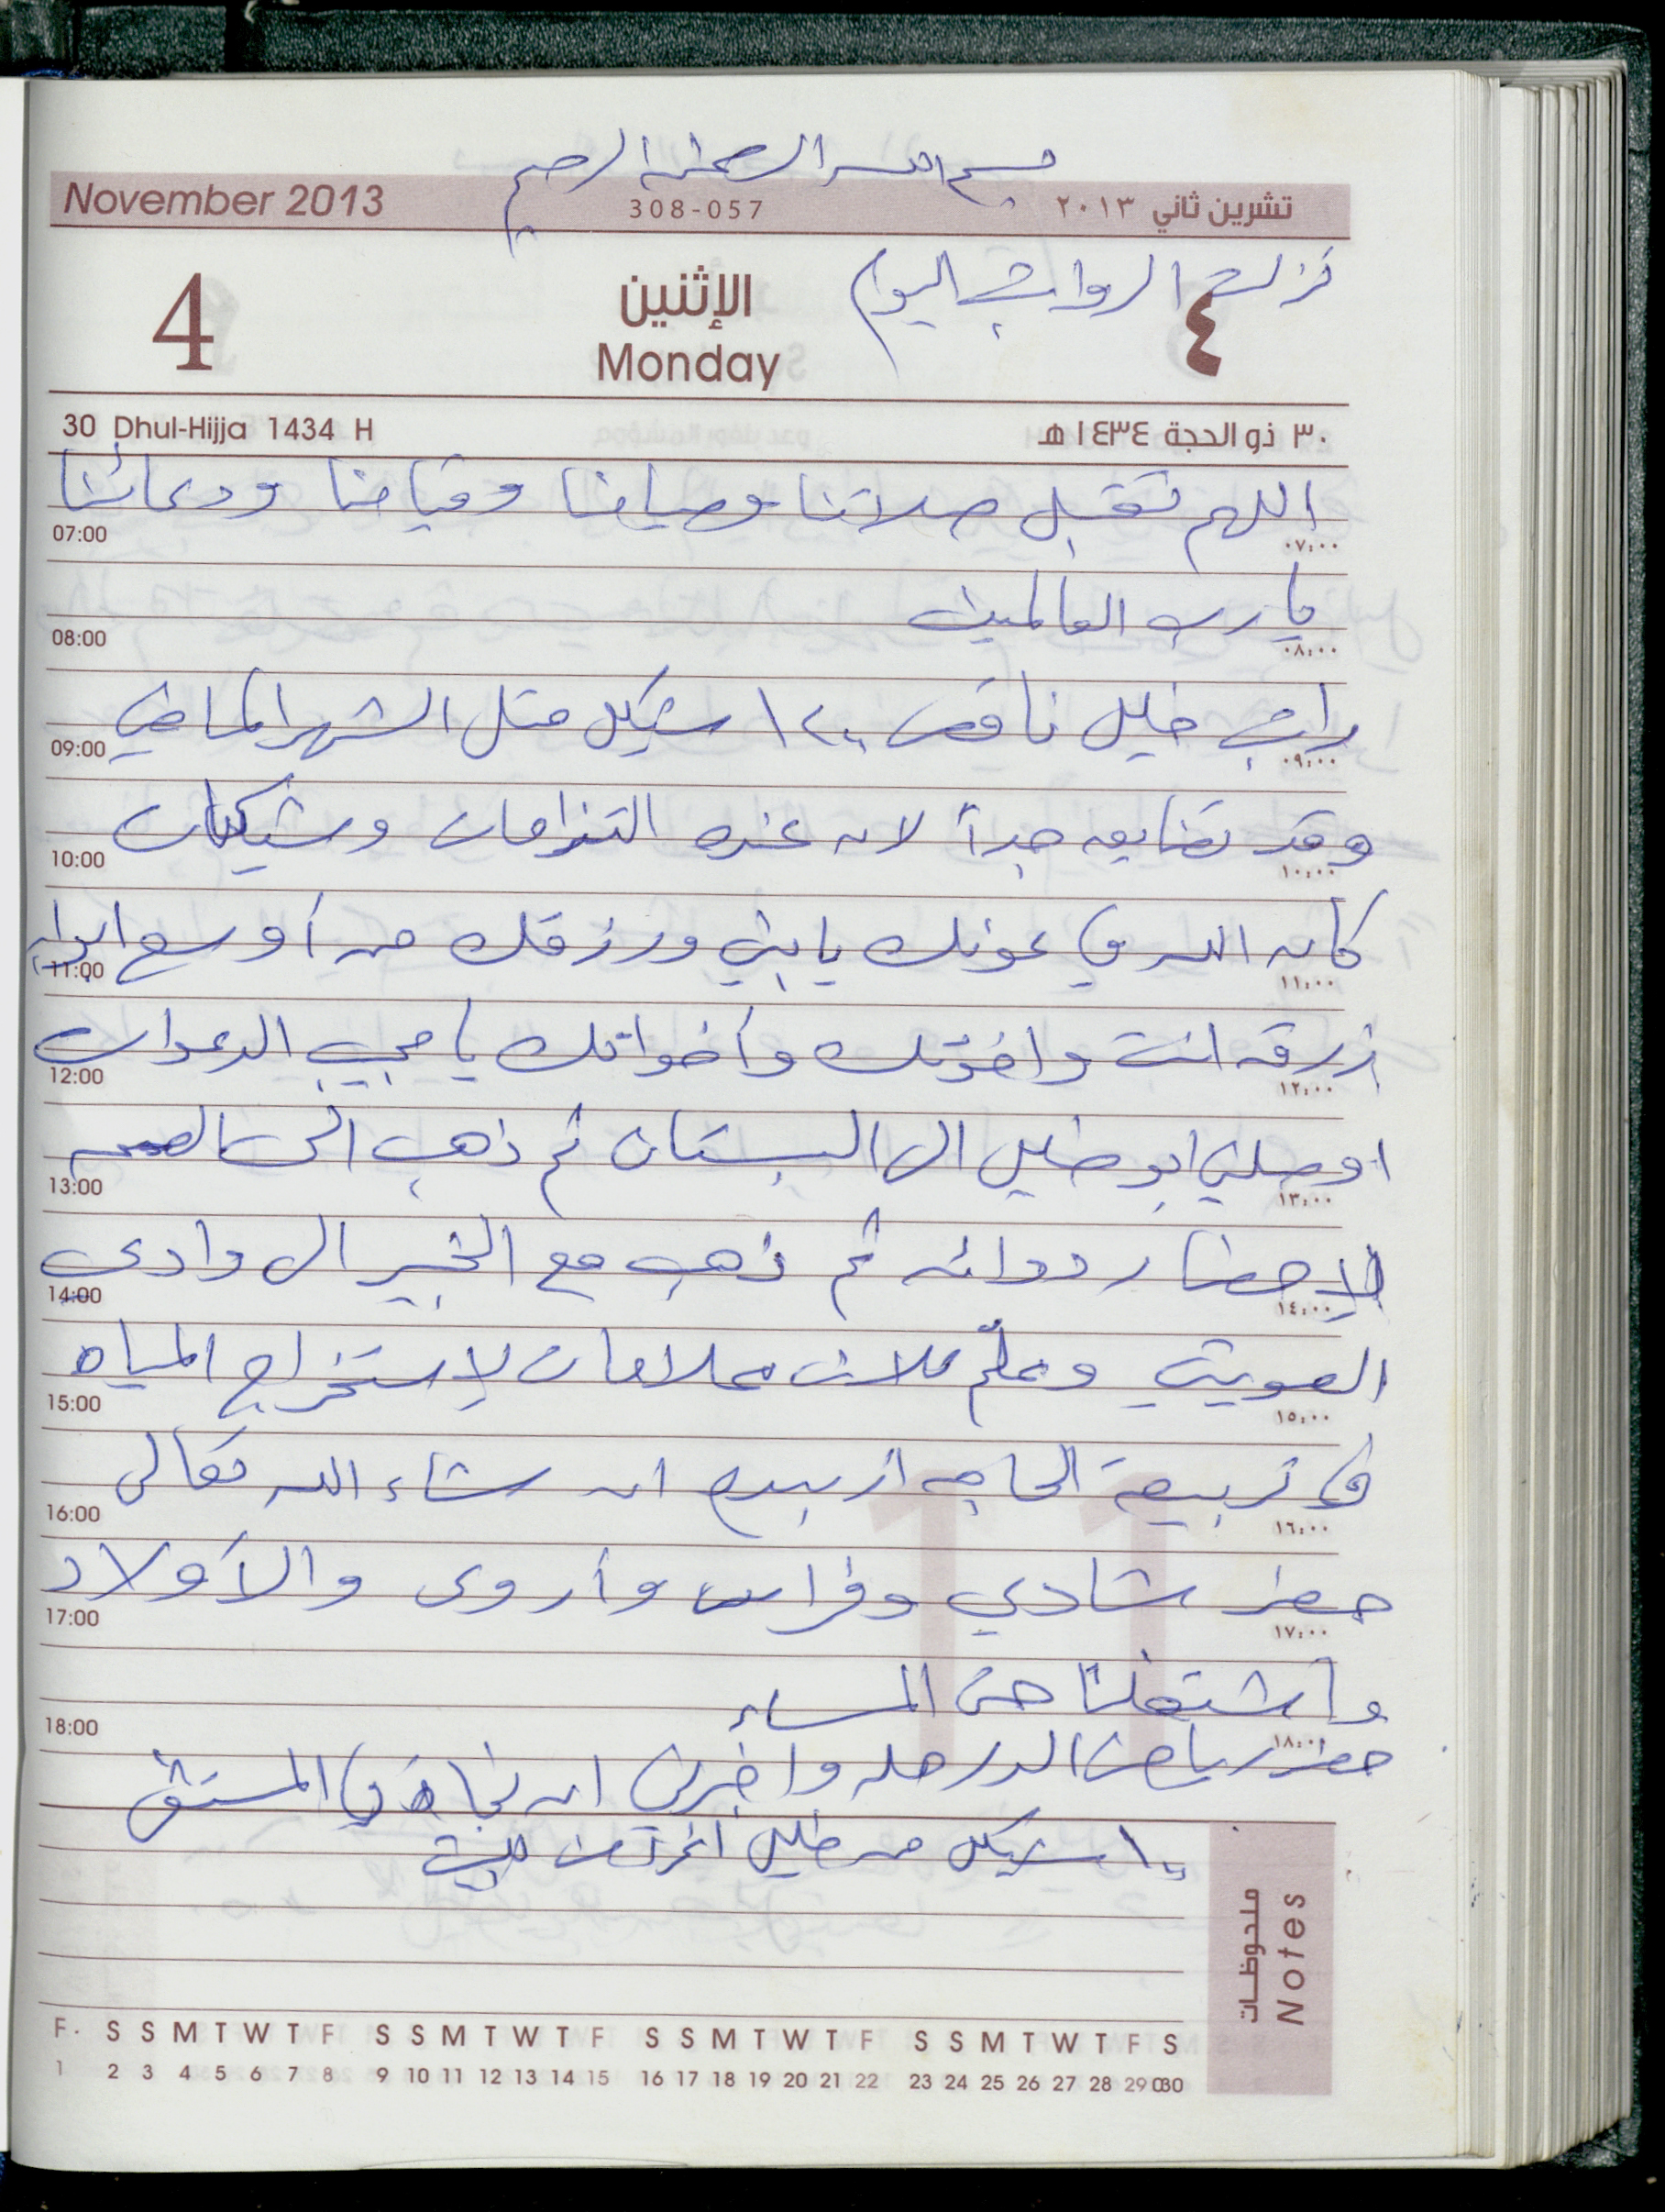 بسم الله الرحمن الرحيم
November 2013 308-057 تشرين ثاني ٢٠١٣
نزلت الرواتب اليوم
4 الإثنين ٤
Monday
30 Dhul-Hijja 1434 H ٣٠ ذو الحجة ١٤٣٤ هـ
اللهم تقبل صلاتنا وصيامنا وقيامنا ودعائنا
07:00 ٠٧:٠٠
يا رب العالمين
08:00 ٠٨:٠٠
راتب خليل ناقص ١٢٠٠ شيكل مثل الشهر الماضي
09:00 ٠٩:٠٠
وقد تضايق جداً لانه عنده التزامات وشيكات
10:00 ١٠:٠٠
كان الله في عونك يا بني ورزقك من أوسع ابواب
11:00 ١١:٠٠
رزقه انت واخوتك وأخواتك يا مجيب الدعوات
12:00 ١٢:٠٠
اوصلني ابو خليل الى البستان ثم ذهب الى الصحه
13:00 ١٣:٠٠
لإحضار دوائه ثم ذهب مع الخبير الى وادي
14:00 ١٤:٠٠
وعلّم ثلاث علامات لإستخراج المياه
15:00 ١٥:٠٠
في تربيعة الحاجه ان شاء الله تعالى
16:00 ١٦:٠٠
حضر شادي وفراس وأروى والأولاد
17:00 ١٧:٠٠
واشتغلنا حتى المساء
18:00 ١٨:٠٠
حضر رياض واخبرني ان نجاة في المستشفى
شيكل من خليل
ملحوظات
Notes
F S S M T W T F S S M T W T F S S M T W T F S S M T W T F S
1 2 3 4 5 6 7 8 9 10 11 12 13 14 15 16 17 18 19 20 21 22 23 24 25 26 27 28 29 30